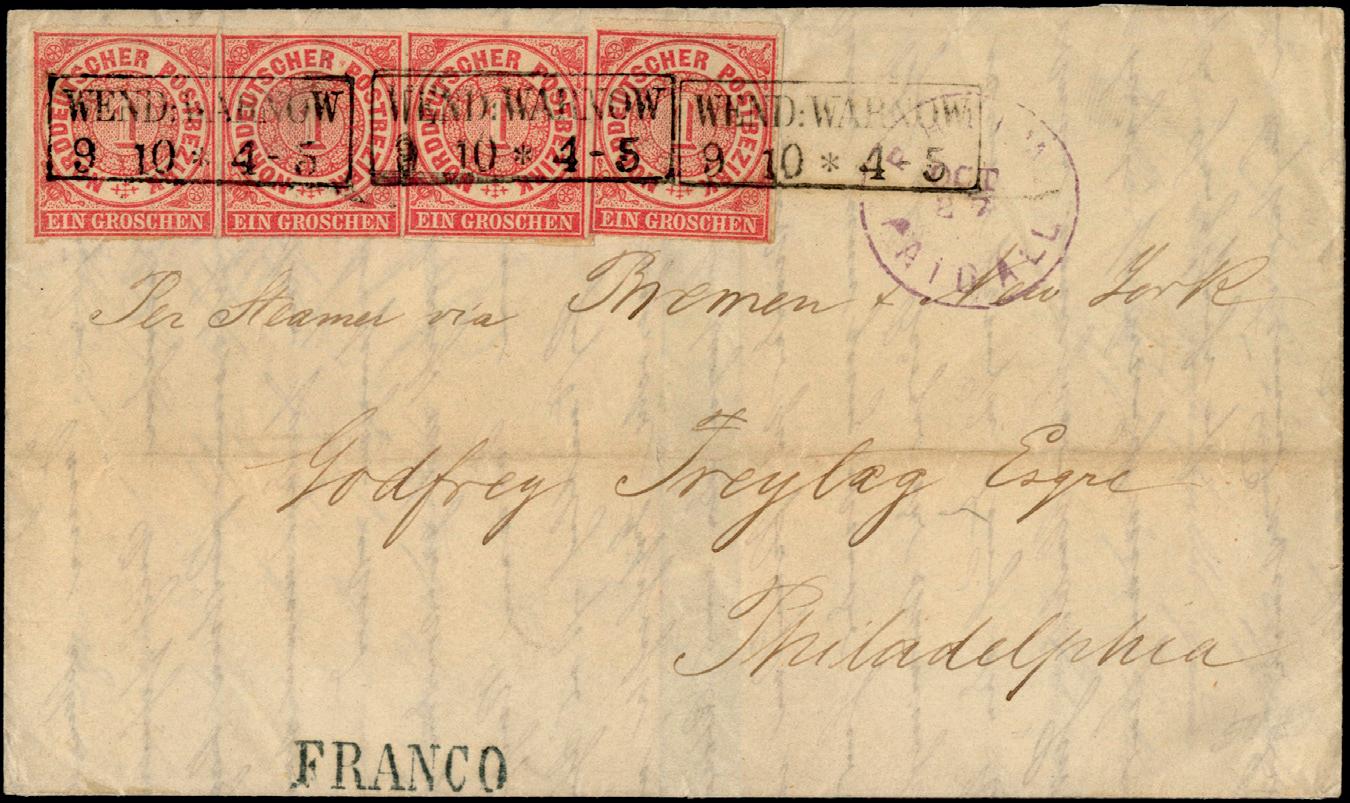 NORDDEUTSCHER POSTBEZIRK NORDDEUTSCHER POSTBEZIRK NORDDEUTSCHER POSTBEZIRK NORDDEUTSCHER POSTBEZIRK
1 1 1 1
EIN GROSCHEN EIN GROSCHEN EIN GROSCHEN EIN GROSCHEN
WEND:WARNOW WEND:WARNOW WEND:WARNOW
9 10 * 4-5 9 10 * 4-5 9 10 * 4-5
OCT
PAID ALL
Per Steamer via Bremen & New York
Godfrey Freytag Esqre
Philadelphia
FRANCO